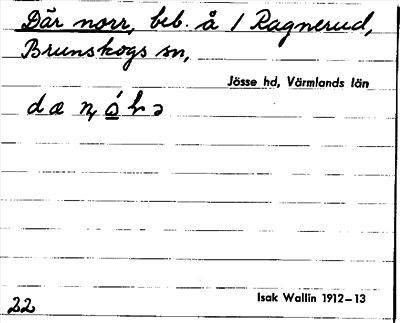 Där norr, beb. å 1 Ragnerud,
Brunskogs sn,
Jösse hd, Värmlands län
Isak Wallin 1912–13
22